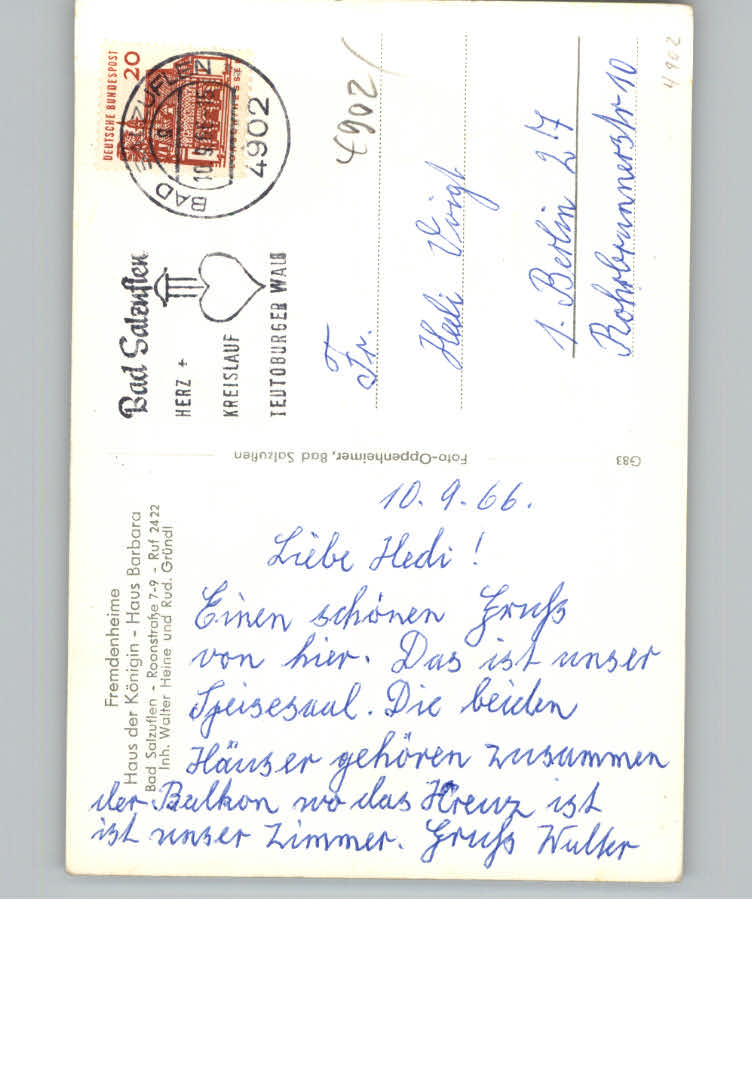 DEUTSCHE BUNDESPOST
20
BAD SALZUFLEN
4902
Bad Salzuflen
HERZ +
KREISLAUF
TEUTOBURGER WALD
4902
4902
Fr.
Hedi Voigt
1. Berlin 27
Rohrbrunnerstr 10
Foto-Oppenheimer, Bad Salzuflen
G83
Fremdenheime
Haus der Königin - Haus Barbara
Bad Salzuflen - Roonstraße 7-9 - Ruf 2422
Inh. Walter Heine und Rud. Gründl
10. 9. 66.
Liebe Hedi!
Einen schönen Gruß
von hier. Das ist unser
Speisesaal. Die beiden
Häuser gehören zusammen
der Balkon wo das Kreuz ist
ist unser Zimmer. Gruß Walter